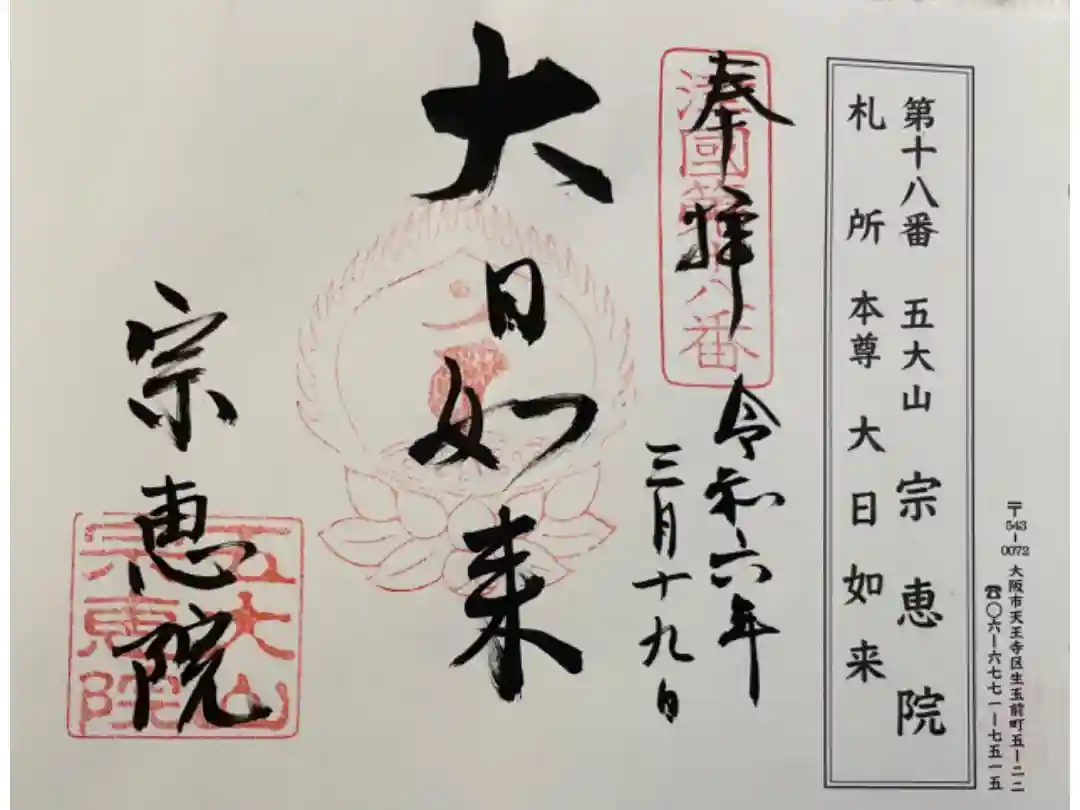 第十八番 五大山 宗恵院
札所 本尊 大日如来
〒543-0072 大阪市天王寺区生玉前町五-二二
☎〇六-六七七一-七五一五
奉拝 令和六年
三月十九日
國第十八番
大日如来
宗恵院
五大山
宗恵院